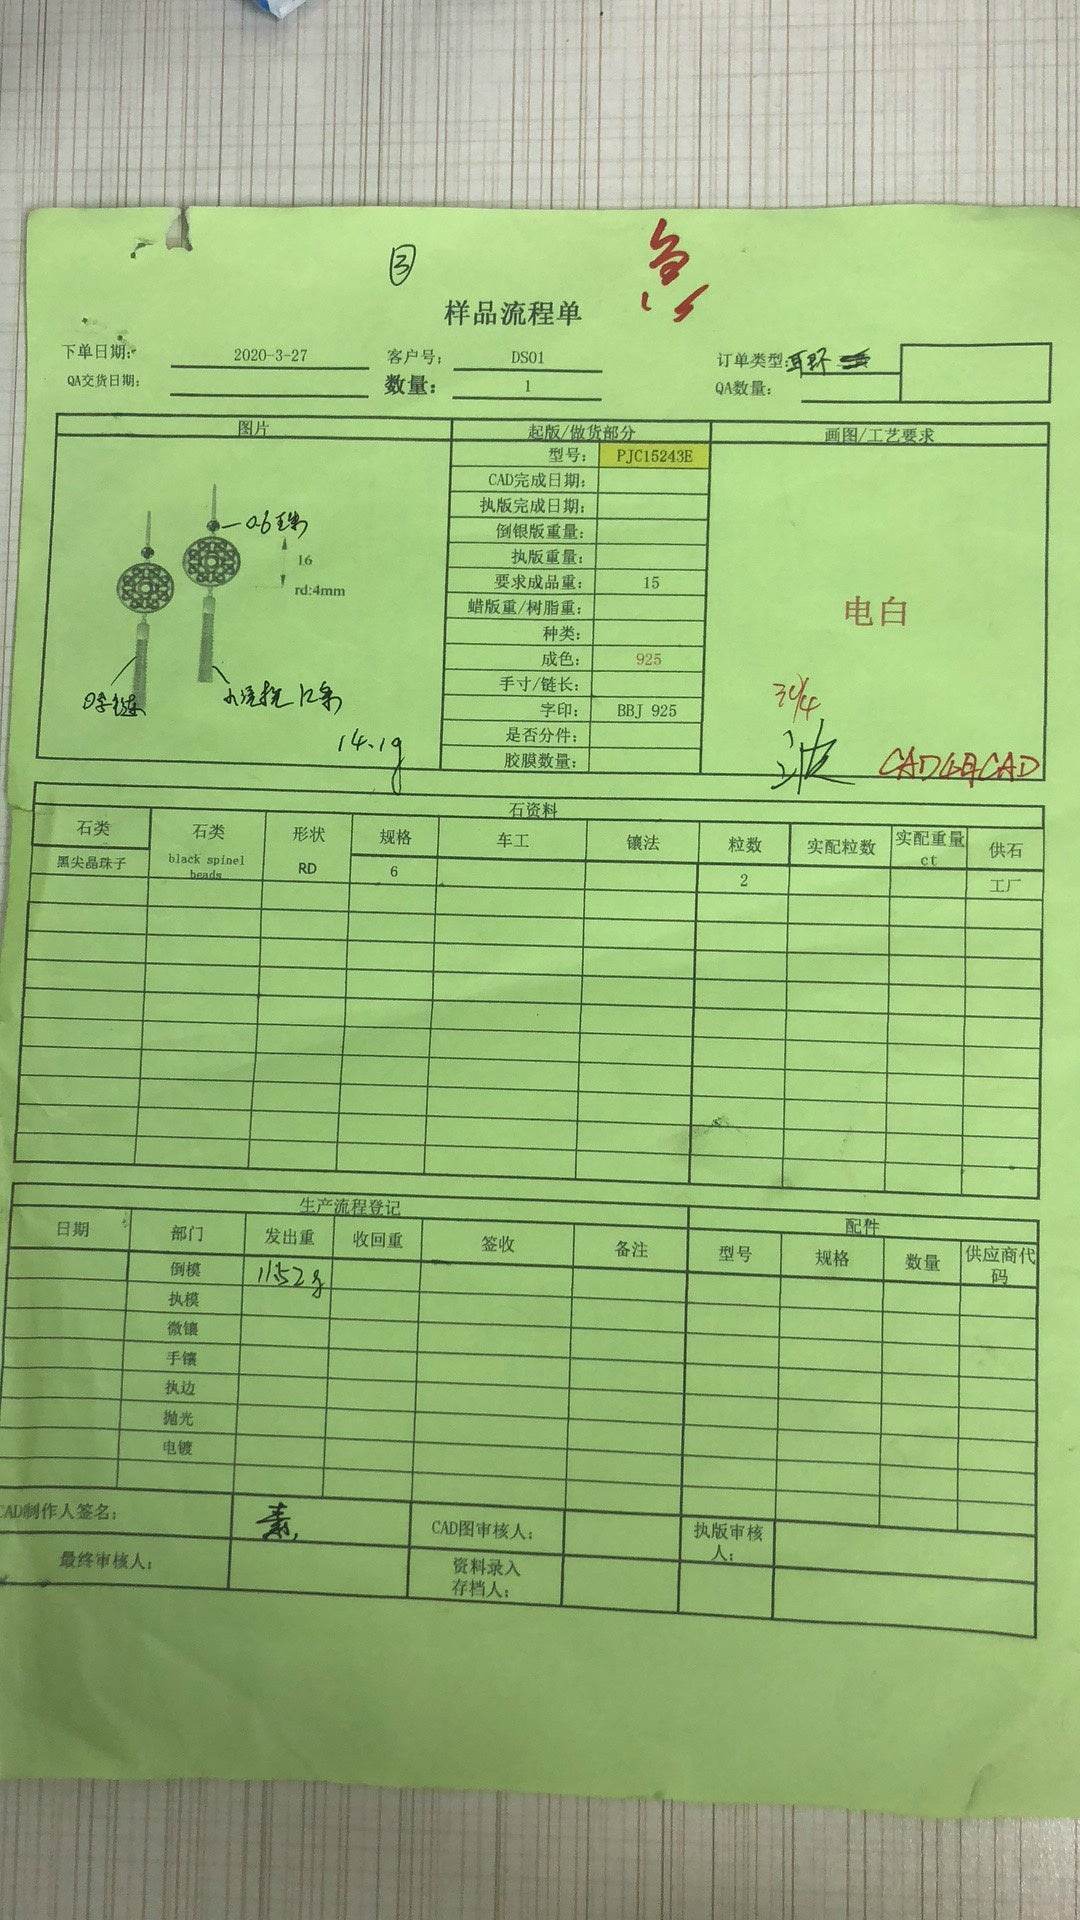 3
急
样品流程单
下单日期: 2020-3-27 客户号: DS01 订单类型: 耳环
QA交货日期: 数量: 1 QA数量:
图片 起版/做货部分 画图/工艺要求
型号: PJC15243E
CAD完成日期:
执版完成日期:
倒银版重量:
执版重量:
要求成品重: 15
蜡版重/树脂重:
种类:
成色: 925
手寸/链长:
字印: BBJ 925
是否分件:
胶膜数量:
16
rd:4mm
12条
14.1g
电白
波
石资料
石类 石类 形状 规格 车工 镶法 粒数 实配粒数 实配重量ct 供石
黑尖晶珠子 black spinel beads RD 6 2 工厂
生产流程登记 配件
日期 部门 发出重 收回重 签收 备注 型号 规格 数量 供应商代码
倒模 11.52g
执模
微镶
手镶
执边
抛光
电镀
CAD制作人签名: CAD图审核人: 执版审核人:
最终审核人: 资料录入存档人: